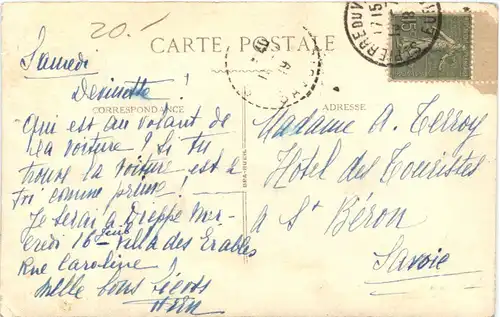 20.-
CARTE POSTALE
Samedi
Devinette !
CORRESPONDANCE
Qui est au volant de
la voiture ? Si tu
trouves la voiture est à
toi comme prime !
Je serai à Dieppe Mer-
credi 16 Juil Villa des Erables
Rue Caroline !
Mille bons
ADRESSE
Madame A. Terroy
Hôtel des Touristes
à St Béron
Savoie